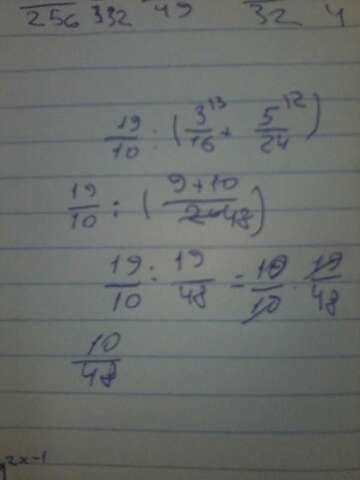 256 332 49 32 4
19/10 : (3/16 |3 + 5/24 |2)
19/10 : (9+10/48)
19/10 : 19/48 = 10/10 · 19/48
10/48
2x-1